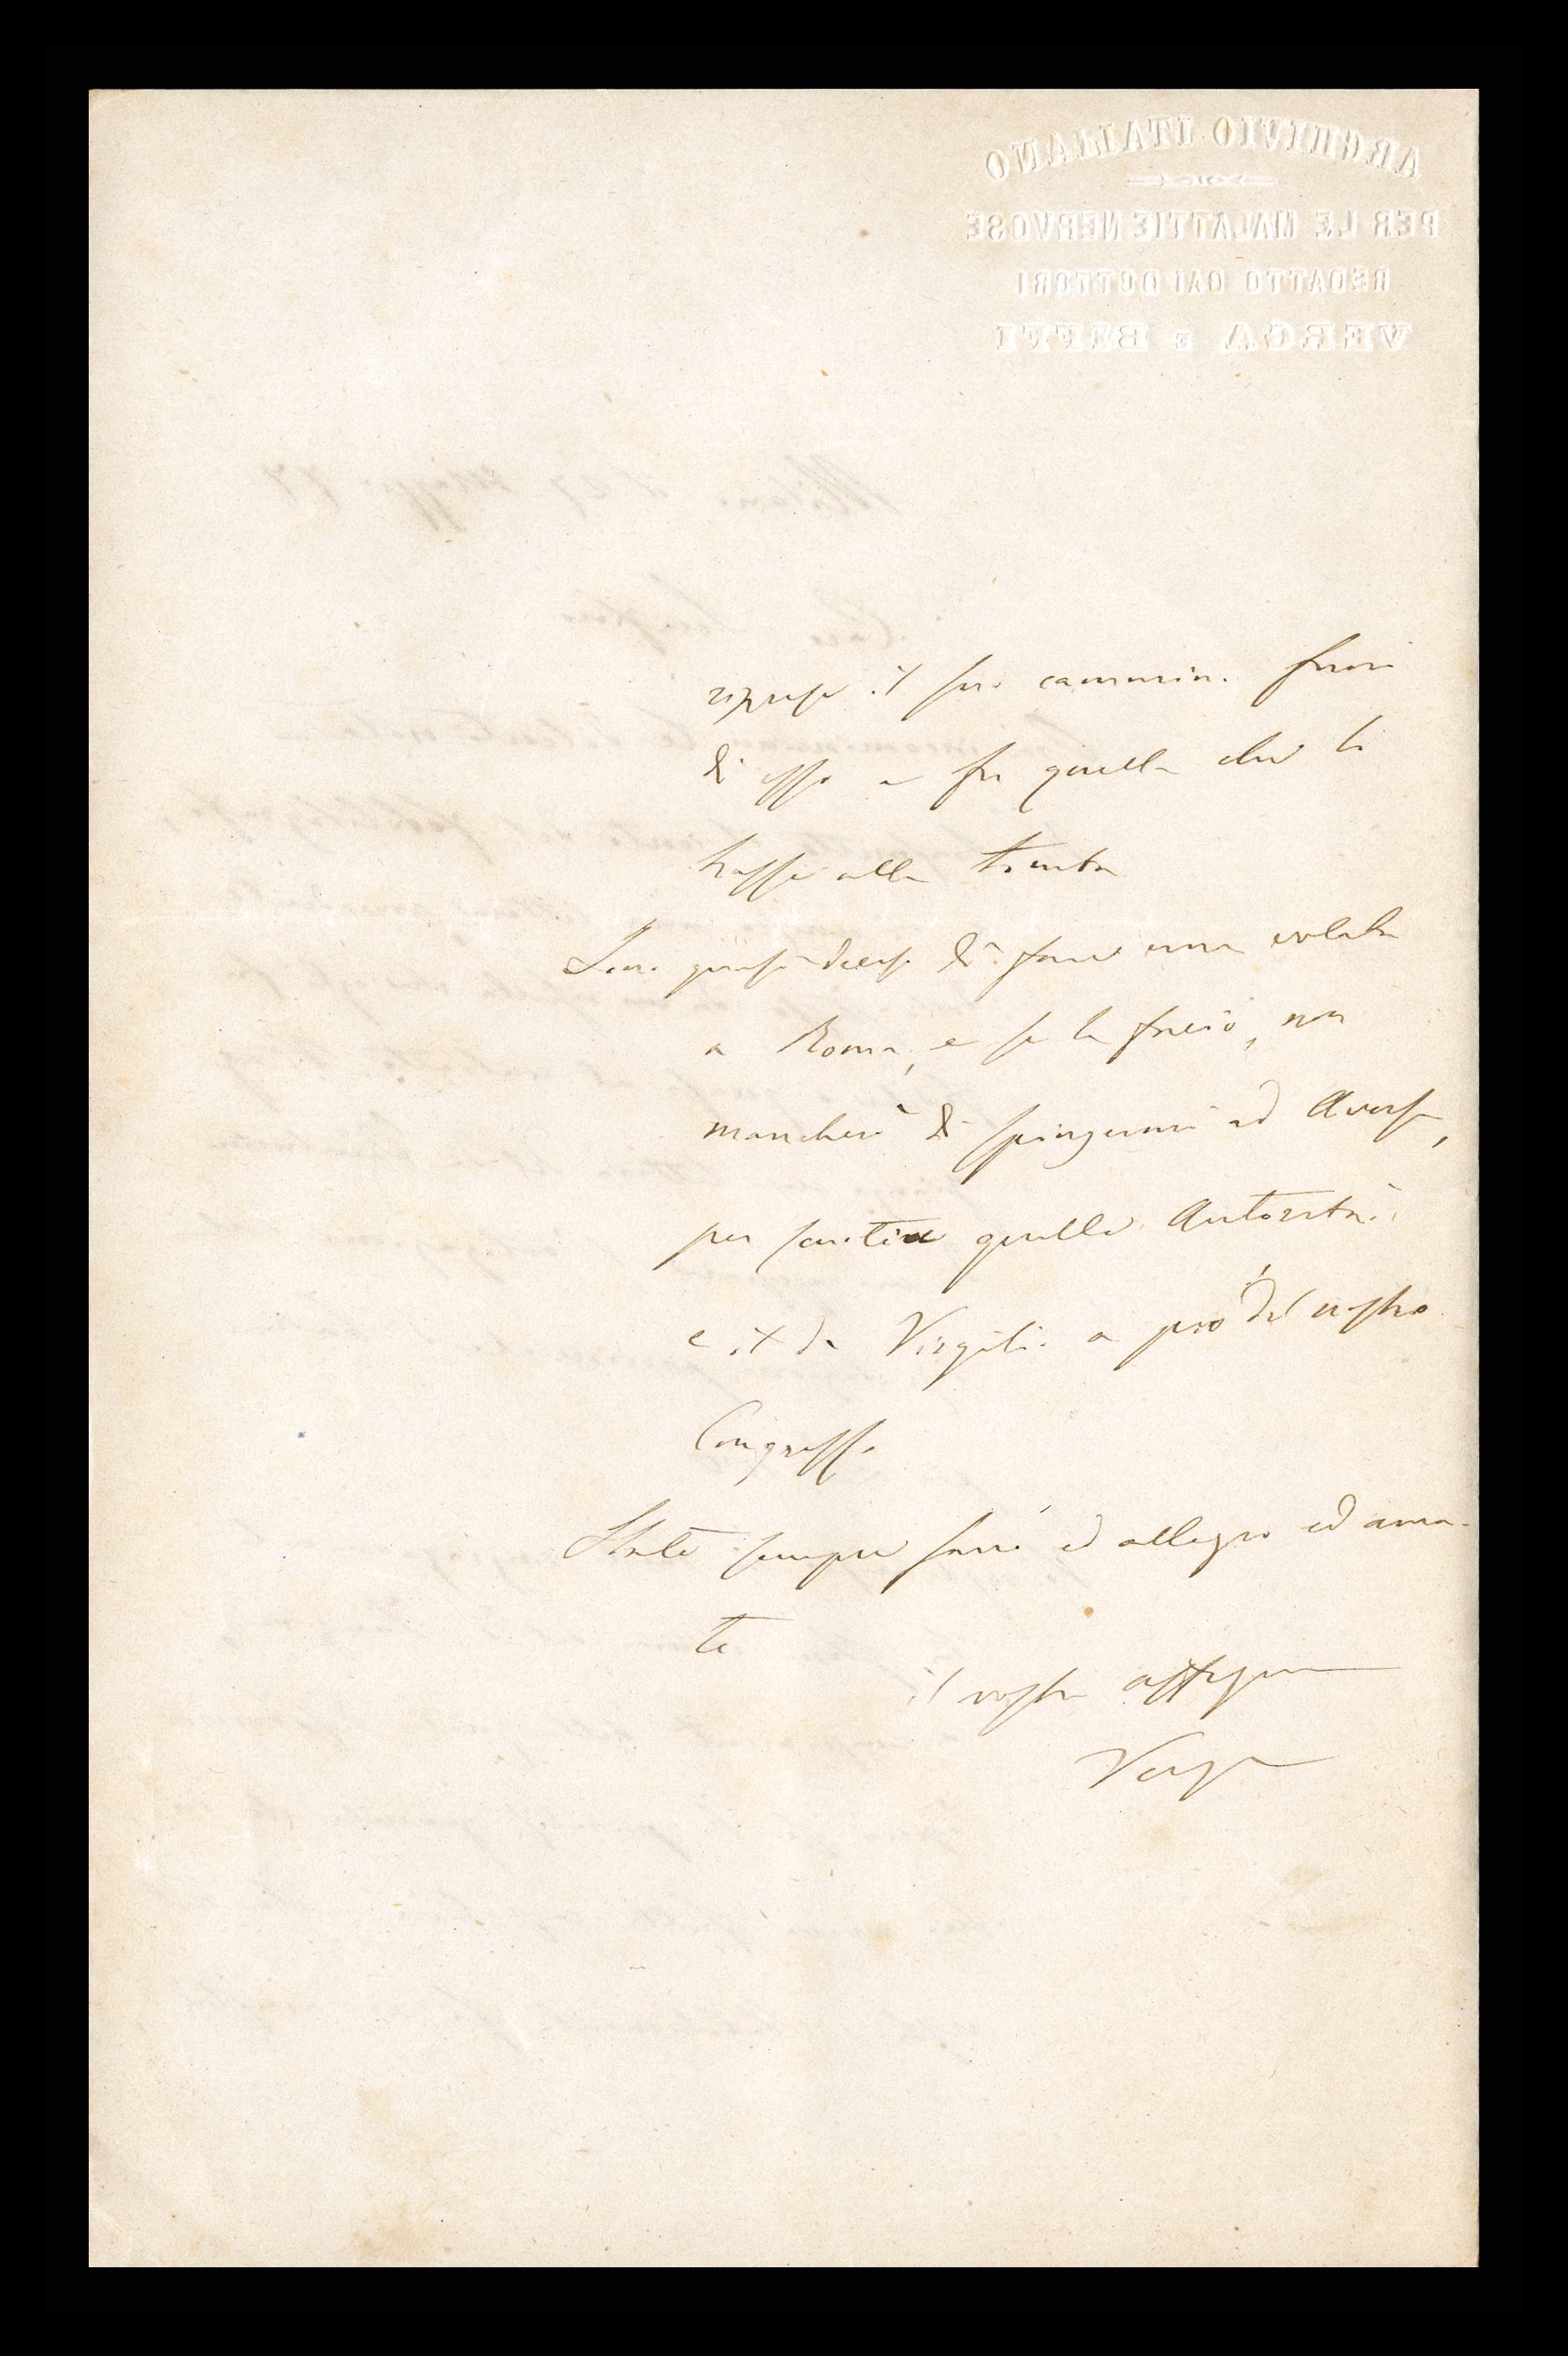 ARCHIVIO ITALIANO
PER LE MALATTIE NERVOSE
REDATTO DAI DOTTORI
VERGA E BIFFI
riprese il suo cammino fuori
di esso e fu quella che lo
trasse alla tomba
Sono quasi deciso di fare una volata
a Roma, e se la faccio, non
mancherò di spingermi ad Aversa,
per sentire quelle Autorità
e il Dr Virgilio a prò del nostro
Congresso
State sempre sano ed allegro ed ama-
te
il vostro
Verga